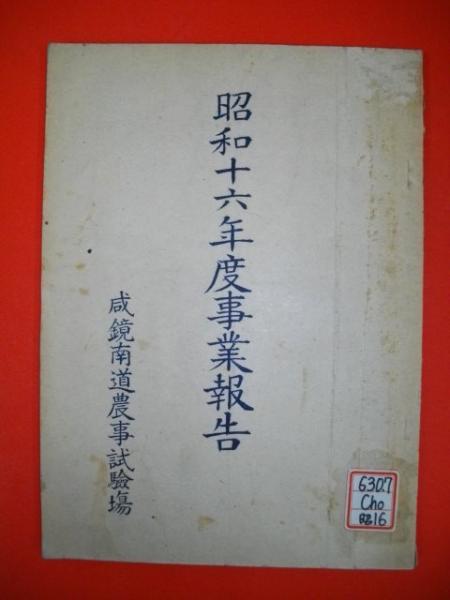 昭和十六年度事業報告
咸鏡南道農事試験場
630.7
Cho
昭16